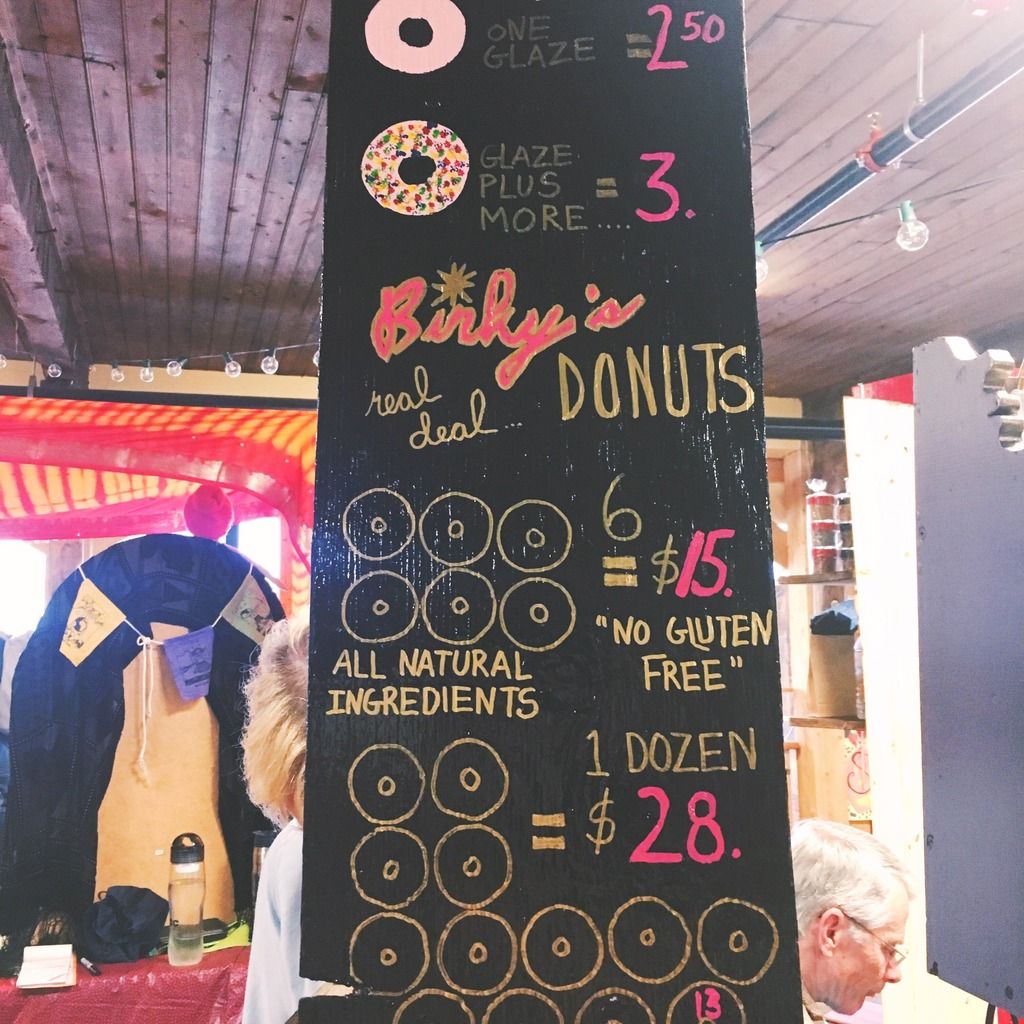 ONE
GLAZE = 2.50
GLAZE
PLUS
MORE .... = 3.
Birky's
real
deal... DONUTS
6
= $15.
"NO GLUTEN
FREE"
ALL NATURAL
INGREDIENTS
1 DOZEN
= $28.
13